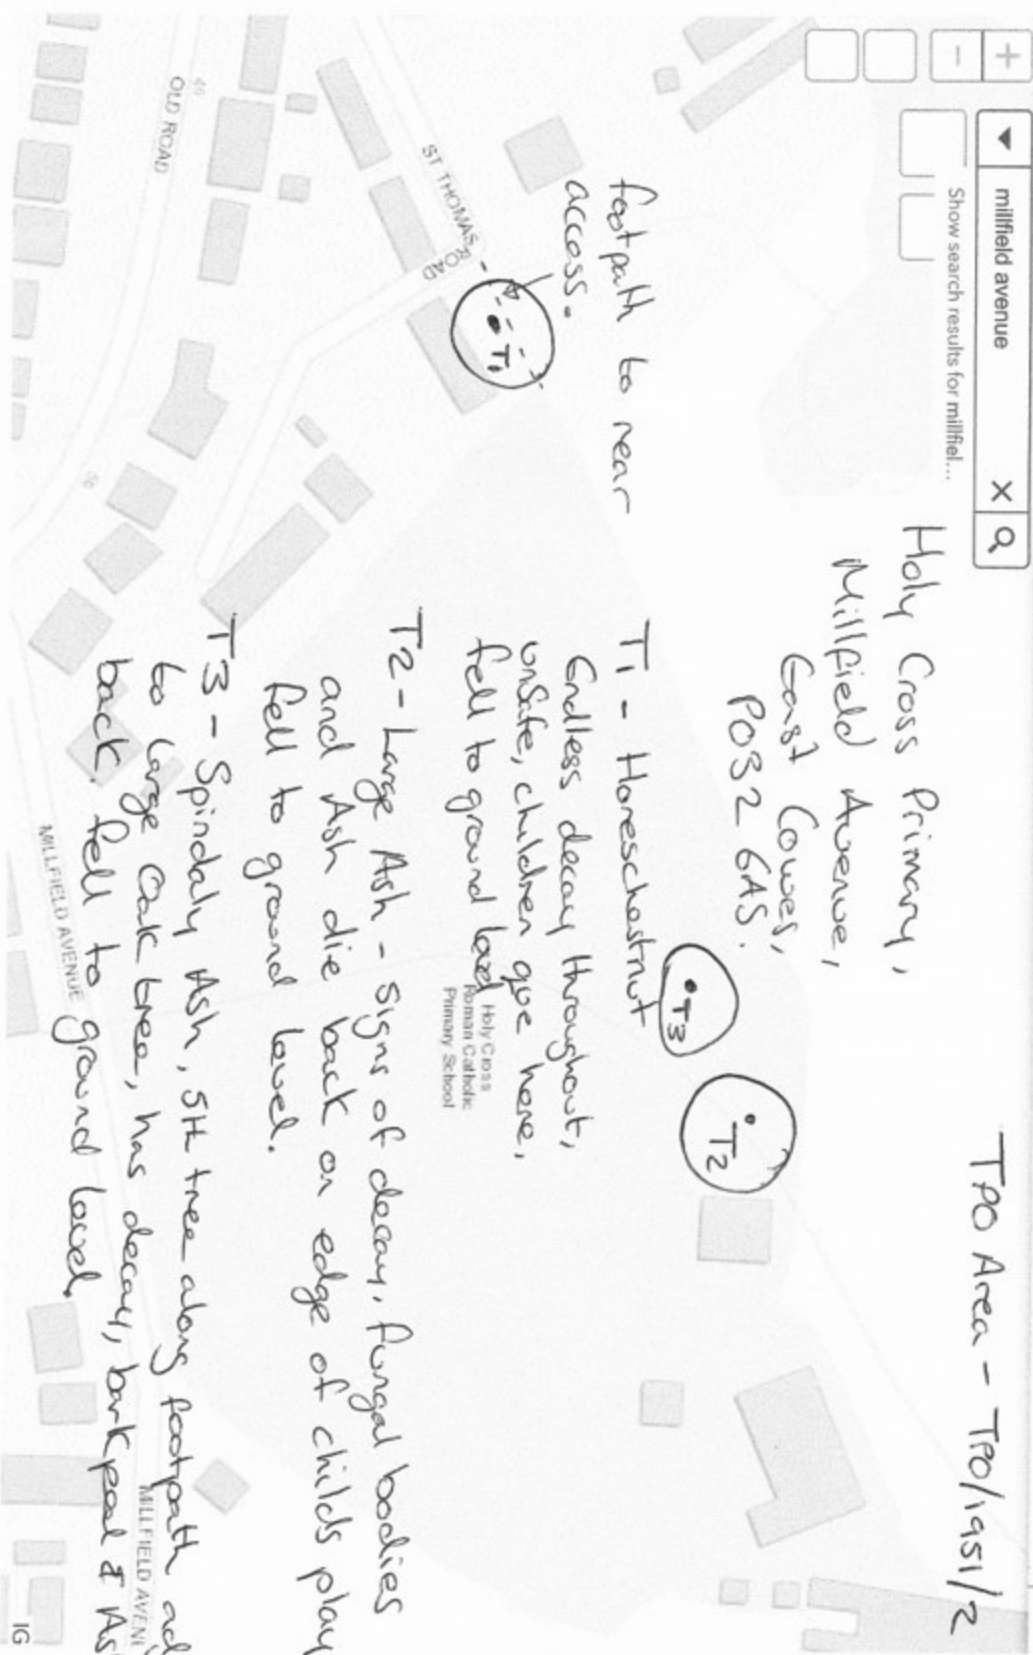 millfield avenue
Show search results for millfiel...
TPO Area - TPO/1951/2
Holy Cross Primary,
Millfield Avenue,
East Cowes,
PO32 6AS.
footpath to near
access.
T1
T3
T2
T1 - Horseschestnut
Endless decay throughout,
unsafe, children que here,
fell to ground level
T2 - Large Ash - Signs of decay, fungal bodies
and Ash die back on edge of childs play
fell to ground level.
T3 - Spindaly Ash, 5th tree along footpath ad
to large Oak tree, has decay, bark peel & As
back. fell to ground level.
ST THOMAS ROAD
OLD ROAD
46
36
Holy Cross
Roman Catholic
Primary School
MILLFIELD AVENUE
MILLFIELD AVENU
IG